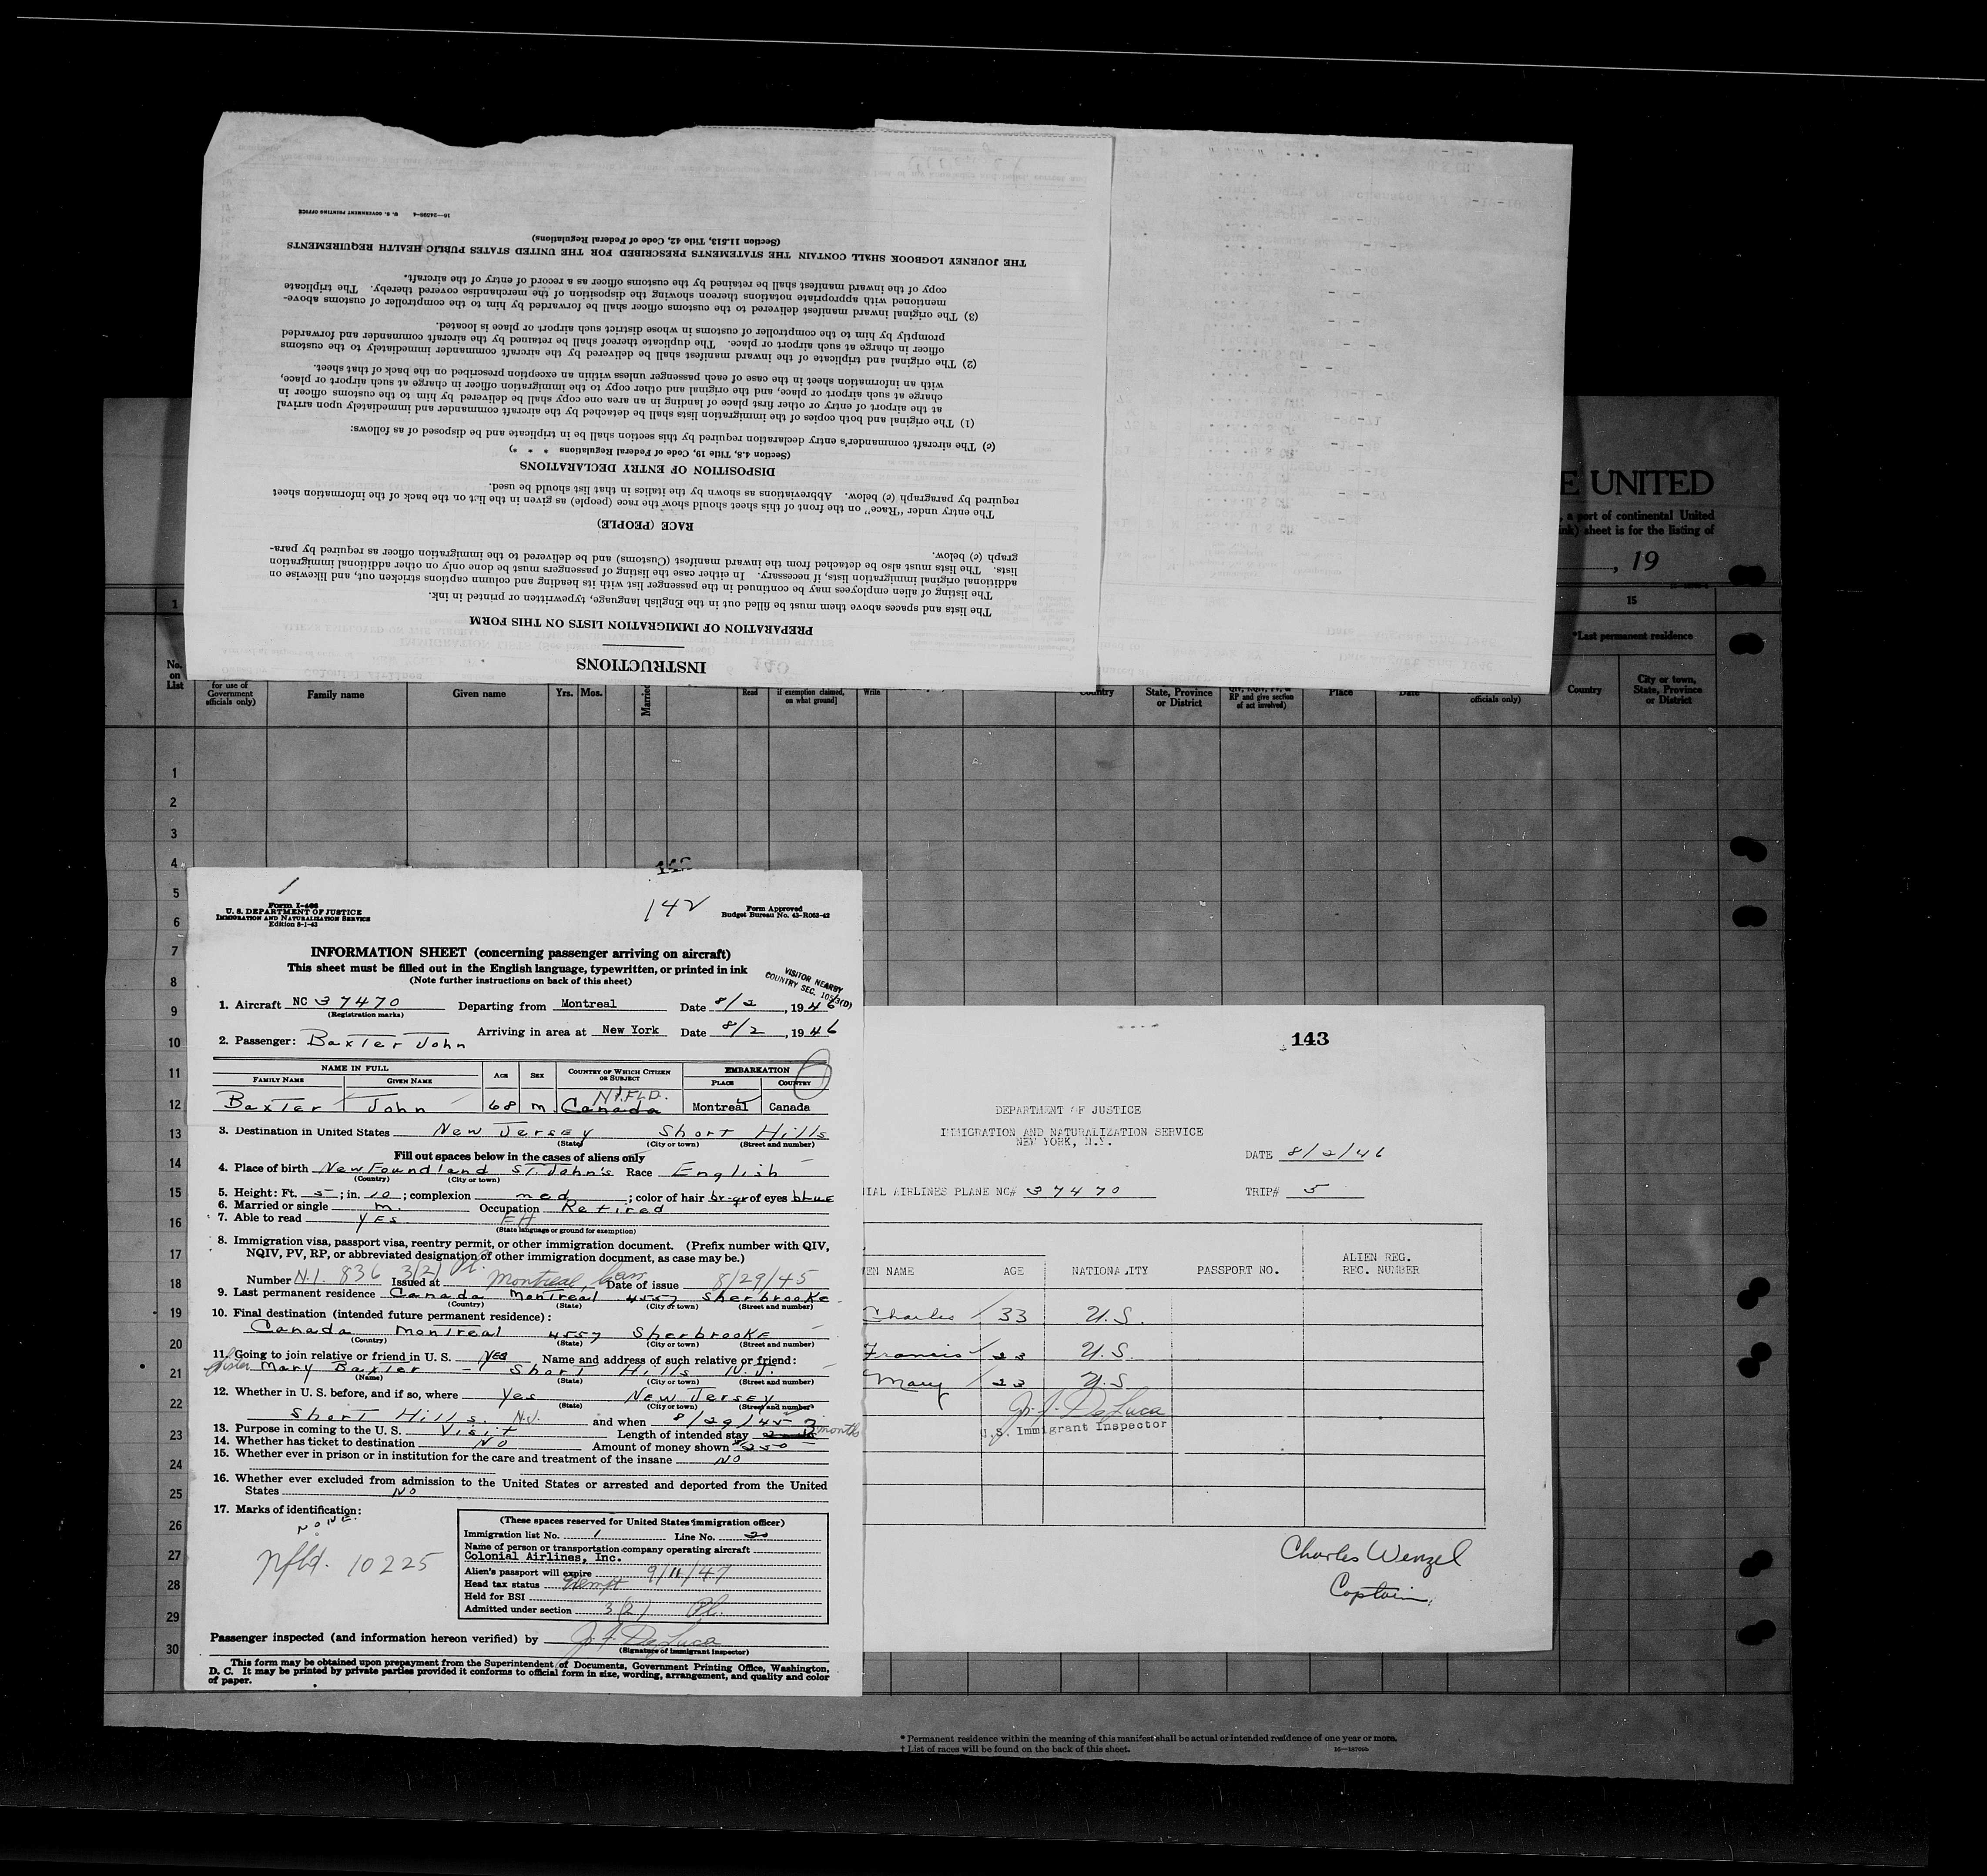 INSTRUCTIONS
PREPARATION OF IMMIGRATION LISTS ON THIS FORM
The lists and spaces above them must be filled out in the English language, typewritten or printed in ink.
The listing of alien employees may be continued in the passenger list with its heading and column captions stricken out, and likewise on
additional original immigration lists, if necessary. In either case the listing of passengers must be done only on other additional immigration
lists. The lists must also be detached from the inward manifest (Customs) and be delivered to the immigration officer as required by para-
graph (c) below.
RACE (PEOPLE)
The entry under "Race" on the front of this sheet should show the race (people) as given in the list on the back of the information sheet
required by paragraph (c) below. Abbreviations as shown by the italics in that list should be used.
DISPOSITION OF ENTRY DECLARATIONS
(Section 4.8, Title 19, Code of Federal Regulations * * *)
(c) The aircraft commander's entry declaration required by this section shall be in triplicate and be disposed of as follows:
(1) The original and both copies of the immigration lists shall be detached by the aircraft commander and immediately upon arrival
at the airport of entry or other first place of landing in an area one copy shall be delivered by him to the customs officer in
charge at such airport or place, and the original and other copy to the immigration officer in charge at such airport or place,
with an information sheet in the case of each passenger unless within an exception prescribed on the back of that sheet.
(2) The original and triplicate of the inward manifest shall be delivered by the aircraft commander immediately to the customs
officer in charge at such airport or place. The duplicate thereof shall be retained by the aircraft commander and forwarded
promptly by him to the comptroller of customs in whose district such airport or place is located.
(3) The original inward manifest delivered to the customs officer shall be forwarded by him to the comptroller of customs above-
mentioned with appropriate notations thereon showing the disposition of the merchandise covered thereby. The triplicate
copy of the inward manifest shall be retained by the customs officer as a record of entry of the aircraft.
THE JOURNEY LOGBOOK SHALL CONTAIN THE STATEMENTS PRESCRIBED FOR THE UNITED STATES PUBLIC HEALTH REQUIREMENTS
(Section 11.513, Title 42, Code of Federal Regulations)
U. S. GOVERNMENT PRINTING OFFICE
E UNITED
, a port of continental United
ink) sheet is for the listing of
, 19
1
15
*Last permanent residence
No. on List
for use of Government officials only)
Family name
Given name
Yrs.
Mos.
Married
Read
if exemption claimed, on what ground]
Write
Country
State, Province or District
QIV, NQIV, PV, & RP and give section of act involved)
Place
Date
officials only)
Country
City or town, State, Province or District
1
2
3
4
5
6
7
8
9
10
11
12
13
14
15
16
17
18
19
20
21
22
23
24
25
26
27
28
29
30
142
Form I-466
U. S. DEPARTMENT OF JUSTICE
IMMIGRATION AND NATURALIZATION SERVICE
Edition 8-1-43
Form Approved
Budget Bureau No. 43-R063-42
INFORMATION SHEET (concerning passenger arriving on aircraft)
This sheet must be filled out in the English language, typewritten, or printed in ink
(Note further instructions on back of this sheet)
VISITOR NEARBY
COUNTRY SEC. 105/3(D)
1. Aircraft NC 37470 Departing from Montreal Date 8/2, 1946
(Registration marks)
Arriving in area at New York Date 8/2, 1946
2. Passenger: Baxter John
NAME IN FULL
FAMILY NAME GIVEN NAME AGE SEX COUNTRY OF WHICH CITIZEN OR SUBJECT EMBARKATION PLACE COUNTRY
NFLD.
Baxter John 68 M. Canada Montreal Canada
3. Destination in United States New Jersey Short Hills
(State) (City or town) (Street and number)
Fill out spaces below in the cases of aliens only
4. Place of birth NewFoundland ST. John's Race English
(Country) (City or town)
5. Height: Ft. 5; in. 10; complexion med; color of hair br-gr of eyes blue
6. Married or single m. Occupation Retired
7. Able to read yes EH
(State language or ground for exemption)
8. Immigration visa, passport visa, reentry permit, or other immigration document. (Prefix number with QIV,
NQIV, PV, RP, or abbreviated designation of other immigration document, as case may be.)
Number N.I. 836 3(2) Pl. Issued at Montreal, Can Date of issue 8/29/45
9. Last permanent residence Canada Montreal 4557 Sherbrooke
(Country) (State) (City or town) (Street and number)
10. Final destination (intended future permanent residence):
Canada Montreal 4557 Sherbrooke
(Country) (State) (City or town) (Street and number)
11. Going to join relative or friend in U. S. Yes Name and address of such relative or friend:
Sister Mary Baxter - Short Hills N.J.
(Name) (State) (City or town) (Street and number)
12. Whether in U. S. before, and if so, where Yes New Jersey
(State) (City or town) (Street and number)
Short Hills. N.J. and when 8/29/45
13. Purpose in coming to the U. S. Visit Length of intended stay 3 months
14. Whether has ticket to destination No Amount of money shown $250
15. Whether ever in prison or in institution for the care and treatment of the insane No
16. Whether ever excluded from admission to the United States or arrested and deported from the United
States No
17. Marks of identification:
NONE.
Nfld. 10225
(These spaces reserved for United States immigration officer)
Immigration list No. 1 Line No. 20
Name of person or transportation company operating aircraft
Colonial Airlines, Inc.
Alien's passport will expire 9/11/47
Head tax status Exempt
Held for BSI
Admitted under section 3(2) Pl.
Passenger inspected (and information hereon verified) by J. F. DeLuca
(Signature of immigrant inspector)
This form may be obtained upon prepayment from the Superintendent of Documents, Government Printing Office, Washington,
D. C. It may be printed by private parties provided it conforms to official form in size, wording, arrangement, and quality and color
of paper.
143
DEPARTMENT OF JUSTICE
IMMIGRATION AND NATURALIZATION SERVICE
NEW YORK, N.Y.
DATE 8/2/46
IAL AIRLINES PLANE NC# 37470 TRIP# 5
EN NAME AGE NATIONALITY PASSPORT NO. ALIEN REG. REC. NUMBER
Charles 33 U.S.
Francis 23 U.S.
Mary 23 U.S.
J. F. DeLuca
U.S. Immigrant Inspector
Charles Wenzel
Captain.
* Permanent residence within the meaning of this manifest shall be actual or intended residence of one year or more.
† List of races will be found on the back of this sheet.